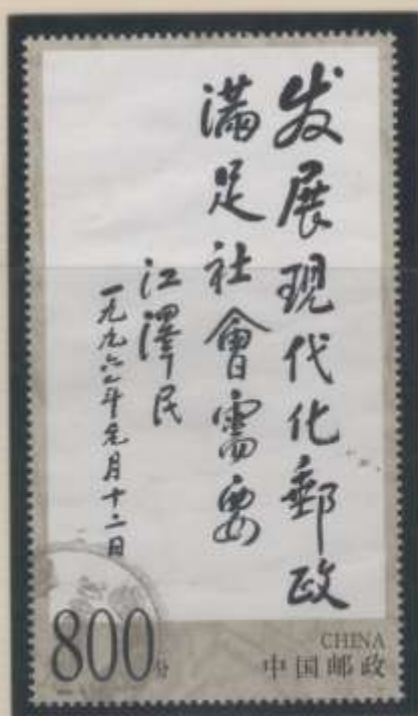 发展現代化郵政
滿足社會需要
江澤民
一九九六年元月十二日
800分
CHINA
中国邮政